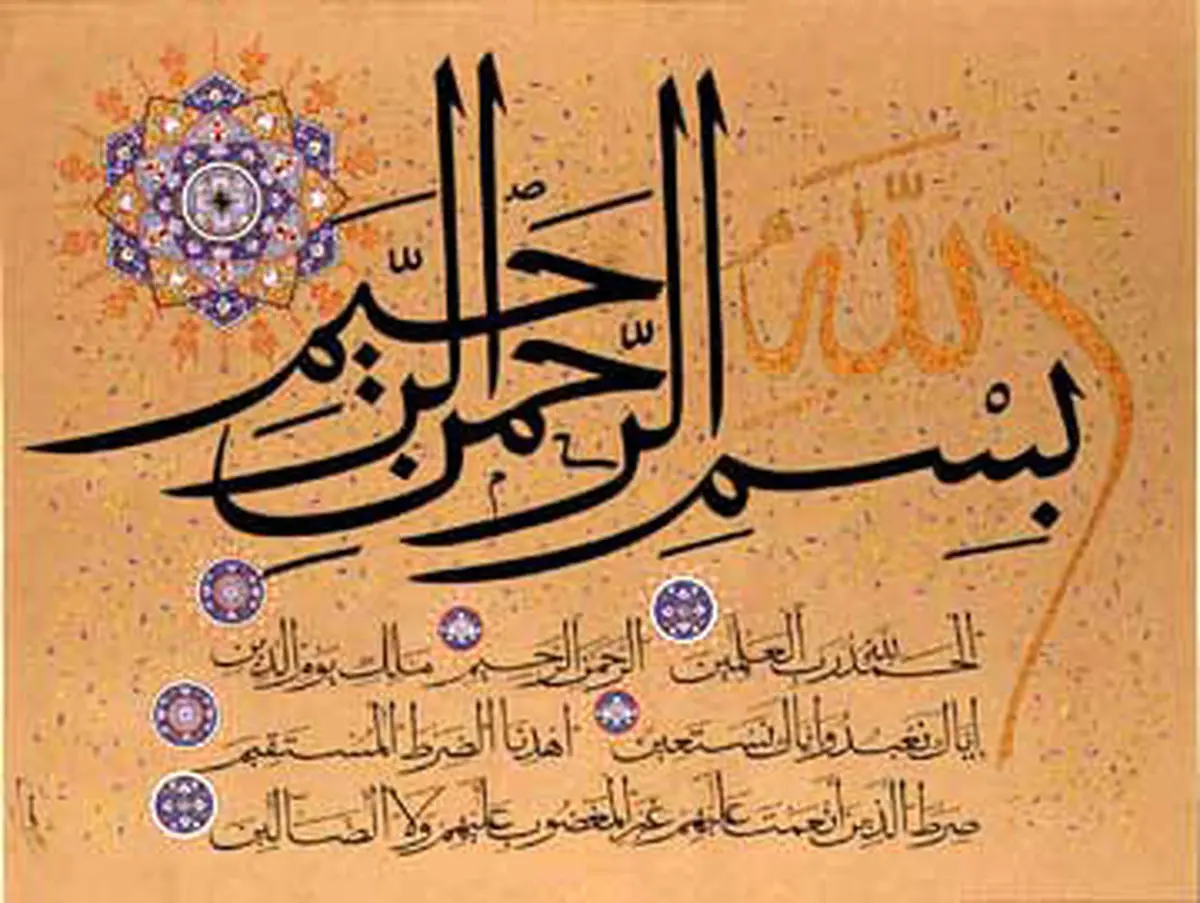 بِسْمِ اللّٰه الرَّحمٰنِ الرَّحِيمِ
الحمد لله رب العلمين الرحمن الرحيم مالك يوم الدين
إياك نعبد وإياك نستعين اهدنا الصرط المستقيم
صرط الذين أنعمت عليهم غير المغضوب عليهم ولا الضالين